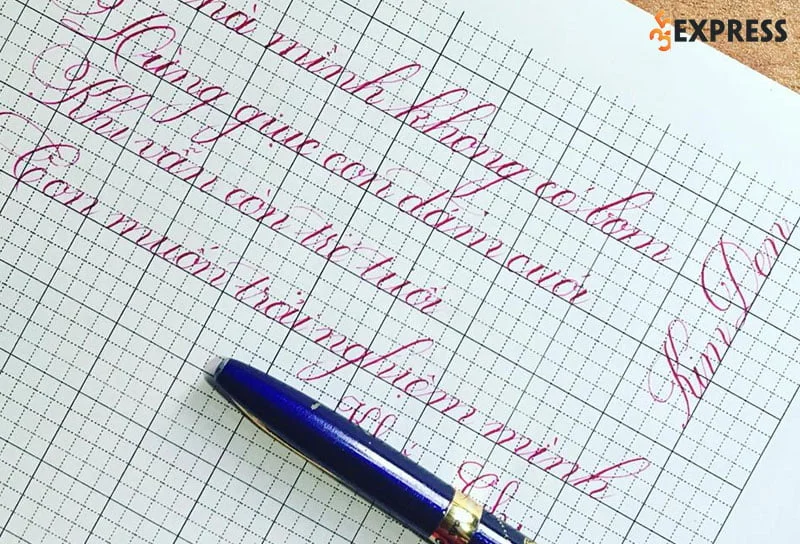 EXPRESS
mình không có bom
Đừng giục con đám cưới
Khi vẫn còn trẻ tuổi
Con muốn trải nghiệm mình